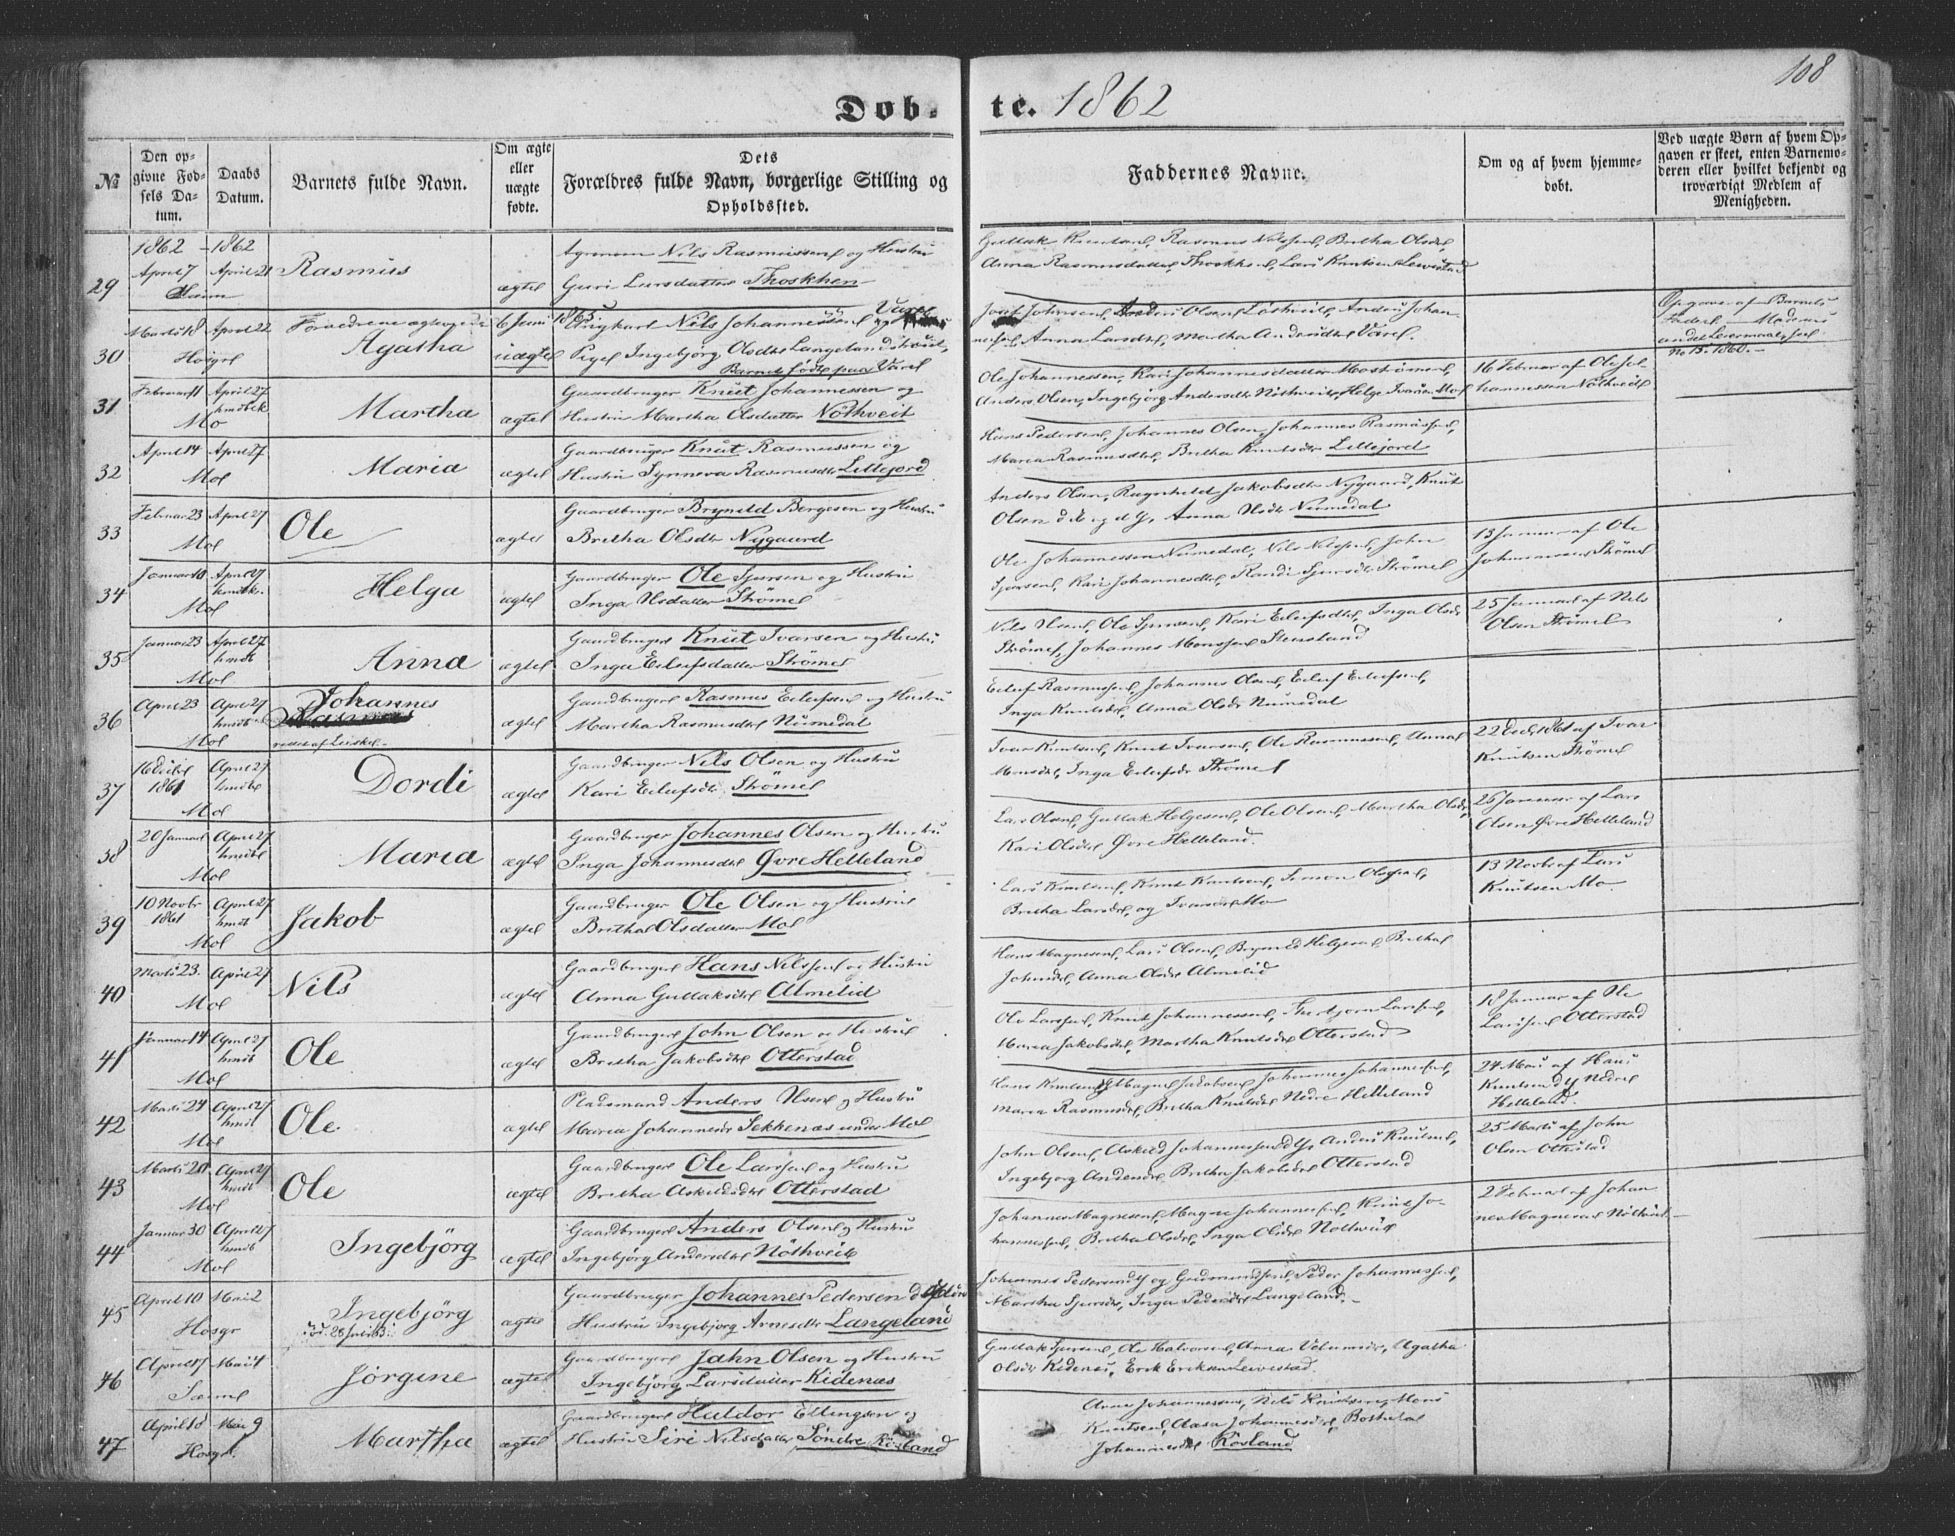 108
Døb- te. 1862
№
Den opgivne Fødsels Datum.
Daabs Datum.
Barnets fulde Navn.
Om ægte eller uægte fødte.
Dets Forældres fulde Navn, borgerlige Stilling og Opholdssted.
Faddernes Navne.
Om og af hvem hjemmedøbt.
Ved uægte Børn af hvem Opgaven er skeet, enten Barnemoderen eller hvilket bekjendt og troværdigt Medlem af Menigheden.
1862 - 1862
29 April 7 April 21 Rasmus ægte Nils Rasmussen og Hustru
Guri Larsdatter
Rasmus Nilssen, Britha Olsdr,
Anna Rasmusdatter
30 Marts 18 April 22 Agatha uægte
6 Juni 1863
Nils Johannessen
Pige Ingebjørg Olsdtr Langeland
Barnet født paa Varel
Anders Olsen Anders Johan-
nessen, Anna Larsdtr, Martha Andersdtr Varel.
Opgave af Barnets
Fader
No 15. 1860. -
31 Februar 11 April 27 hmdbt Mo Martha ægte Gaardbruger Knut Johannessen og
Hustru Martha Olsdatter Nöthveit
Ole Johannessen, Kari Johannesdatter
Anders Olsen, Ingebjörg Andersdtr Nöthveit, Helge Ivarsen Mo
16 Februar af Ole Jo-
hannessen Nöthveit
32 April 14 April 27 Mo Maria ægte Gaardbruger Knut Rasmussen og
Hustru Synneva Rasmusdtr Lillejord
Hans Pedersen, Johannes Olsen, Johannes Rasmussen,
Maria Rasmusdtr, Britha Knutsdtr Lillejord
33 Februar 23 April 27 Mo Ole ægte Gaardbruger Bryneld Børgesen og Hustru
Britha Olsdtr Nygaard
Anders Olsen, Ragnhild Jakobsdtr Nygaard, Knut
Olsen d E og d Y, Anna Olsdtr Numedal
34 Januar 10 April 27 hmdbt. Mo Helga ægte Gaardbruger Ole Sjursen og Hustru
Inga Olsdatter Strömel
Ole Johannessen Numedal, Nils Nilssen, John
Sjursen, Kari Johannesdtr, Randi Sjursdtr Strömel
13 Januar af Ole
Johannessen Strömel
35 Januar 23 April 27 hmdbt Mo Anna ægte Gaardbruger Knut Ivarsen og Hustru
Inga Eilefsdatter Strömel
Nils Olsen, Ole Sjursen, Kari Eilefsdtr, Inga Olsdtr
Strömel, Johannes Monssen Steinsland
25 Januar af Nils
Olsen Strömel
36 April 23 April 27 Mo Johannes
ægte Gaardbruger Rasmus Eilefsen og Hustru
Martha Rasmusdtr Numedal
Eilef Rasmussen, Johannes Olsen, Eilef Eilefsen,
Inga Knutsdtr, Anna Olsdtr Numedal
37 16 Decbr 1861 April 27 hmdbt Mo Dordi ægte Gaardbruger Nils Olsen og Hustru
Kari Eilefsdtr Strömel
Ivar Knutsen, Knut Ivarsen, Ole Rasmussen, Anna
Monsdtr, Inga Eilefsdtr Strömel
22 Decbr 1861 af Ivar
Knutsen Strömel
38 20 Januar April 27 hmdbt Mo Maria ægte Gaardbruger Johannes Olsen og Hustru
Inga Johannesdtr Øvre Helleland
Lars Olsen, Gullak Helgesen, Ole Olsen, Martha Olsdtr,
Kari Olsdtr Øvre Helleland.
26 Januar af Lars
Olsen Øvre Helleland
39 10 Novbr 1861 April 27 hmdt Mo Jakob ægte Gaardbruger Ole Olsen og Hustru
Britha Olsdatter Mo
Lars Knutsen, Knut Knutsen, Simon Olssen,
Britha Larsdtr, og Ivarsdtr Mo
13 Novbr af Lars
Knutsen Mo.
40 Marts 23. April 27 Mo Nils ægte Gaardbruger Hans Nilssen og Hustru
Anna Gullaksdtr Almelid
Hans Magnesen, Lars Olsen, Bryneld Helgesen, Britha
Johnsdtr, Anna Olsdtr Almelid
41 Januar 14 April 27 hmdt Mo Ole ægte Gaardbruger John Olsen og Hustru
Britha Jakobsdtr Otterstad
Ole Larssen, Knut Johannessen, Larssen,
Maria Jakobsdtr, Martha Knutsdtr Otterstad
18 Januar af Ole
Larssen Otterstad
42 Marts 24 April 27 hmdt Mo Ole ægte Pladsmand Anders Olsen og Hustru
Maria Johannesdtr Sekkenæs under Mo
Hans Knutsen dY, Magne Jakobsen, Johannes Johannessen,
Maria Rasmusdtr, Britha Knutsdtr Nedre Helleland
24 Mars af Hans
Knutsen dY Nedre
Helleland.
43 Marts 20 April 27 hmdt Mo Ole ægte Gaardbruger Ole Larssen og Hustru
Britha Askildsdtr Otterstad
John Olsen, Askild Johannessen dY, Anders Knutsen,
Ingebjørg Andersdtr, Britha Jakobsdtr Otterstad
25 Marts af John
Olsen Otterstad
44 Januar 30 April 27 hmdt Mo Ingebjörg ægte Gaardbruger Anders Olsen og Hustru
Ingebjörg Andersdtr Nöthveit
Johannes Magnesen, Magne Johannessen, Knut Jo-
hannessen, Britha Olsdtr, Inga Olsdtr Nöthveit
2 Februar af Johan
nes Magnesen Nöthveit
45 April 10 Mai 2 Hosgr Ingebjörg ægte Gaardbruger Johannes Pedersen d Ældre
Hustru Ingebjørg Arnesdtr Langeland
Johannes Pedersen dY og Gudmundsen, Peder Johannessen,
Martha Sjursdtr, Inga Pedersdtr Langeland. -
46 April 17 Mai 4 Jörgine ægte Gaardbruger John Olsen og Hustru
Ingebjörg Larsdatter Kidenæs
Gullak Sjursen, Ole Halvorsen, Anna Agatha
Olsdtr Kidenæs, Erik Eriksen
47 April 18 Mai 9 Hosgr. Martha ægte Gaardbruger Haldor Ellingsen og
Hustru Siri Nilsdatter Söndre Rövland
Arne Johannessen, Nils Knudsen, Mons
Knutsen, Aasa Johannesdtr,
Johannesdtr Rövland